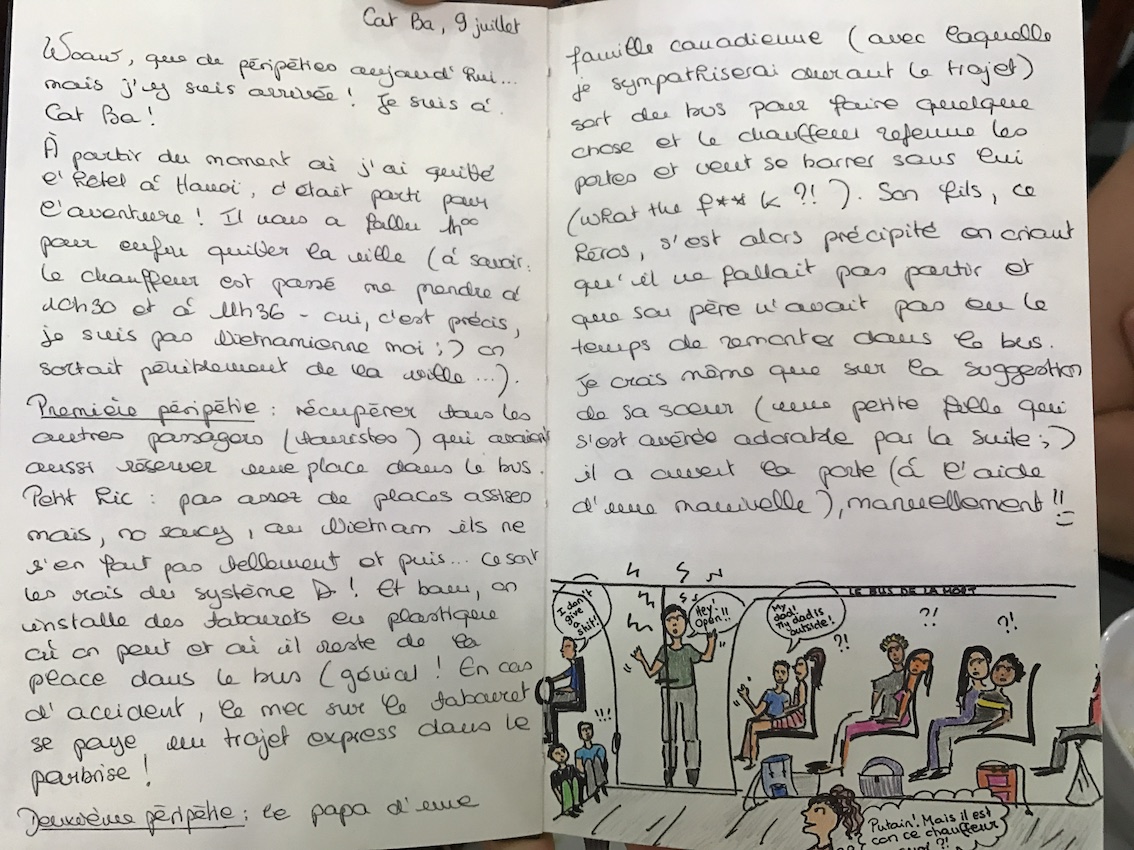 Cat Ba, 9 juillet
Woaw, que de péripéties aujourd'hui...
mais j'y suis arrivée ! Je suis à
Cat Ba !
À partir du moment où j'ai quitté
l'hôtel à Hanoi, c'était parti pour
l'aventure ! Il nous a fallu 1h00
pour enfin quitter la ville (à savoir :
le chauffeur est passé me prendre à
10h30 et à 11h36 - oui, c'est précis,
je suis pas Vietnamienne moi ;) on
sortait péniblement de la ville ...).
Première péripétie : récupérer tous les
autres passagers (touristes) qui avaient
aussi réserver une place dans le bus.
Petit hic : pas assez de places assises
mais, no sorcy, au Vietnam ils ne
s'en fait pas tellement et puis... ce sont
les rois du système D ! Et bam, on
installe des tabourets en plastique
où on peut et où il reste de la
place dans le bus (génial ! En cas
d'accident, le mec sur le tabouret
se paye un trajet express dans le
parbrise !
Deuxième péripétie : le papa d'une
famille canadienne (avec laquelle
je sympathiserai durant le trajet)
sort du bus pour faire quelque
chose et le chauffeur referme les
portes et veut se barrer sans lui
(what the f** k ?! ). Son fils, ce
héros, s'est alors précipité en criant
qu'il ne fallait pas partir et
que son père n'avait pas eu le
temps de remonter dans le bus.
Je crois même que sur la suggestion
de sa soeur (une petite fille qui
s'est avérée adorable par la suite ;)
il a ouvert la porte (à l'aide
d'une manivelle), manuellement !!
LE BUS DE LA MORT
I don't
give
a
shit!
Hey!
Open!!
My
dad!
My dad is
outside!
?!
?!
?!
!!!
Putain! Mais il est
con ce chauffeur
?!